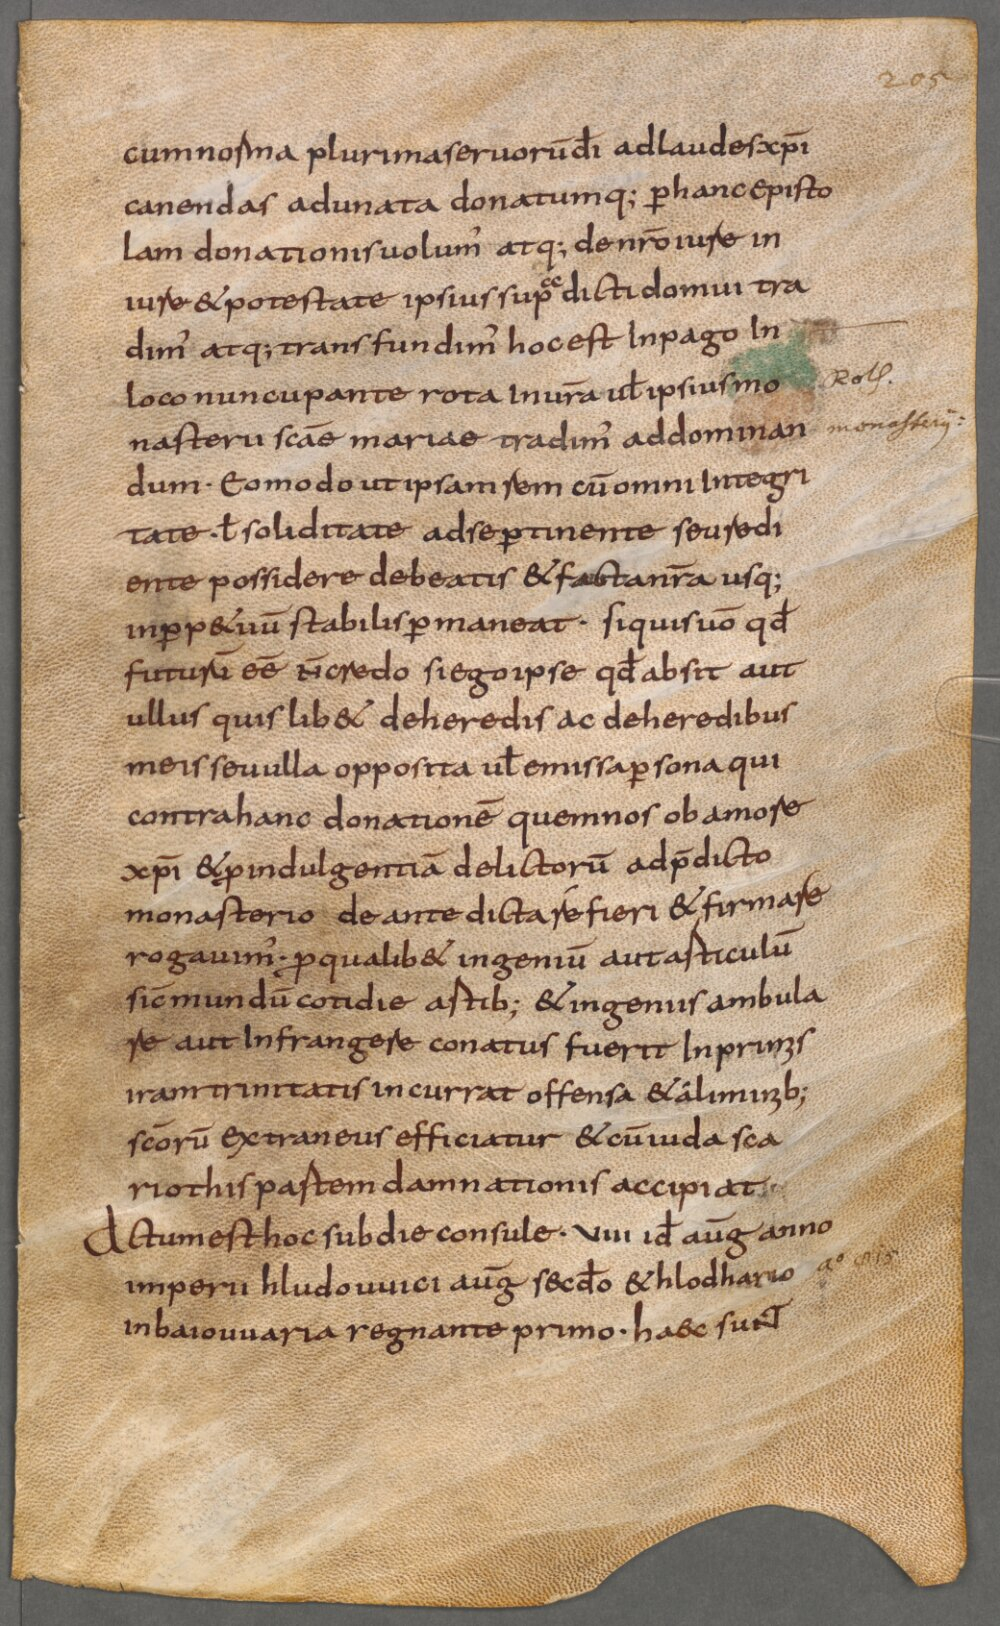 205
cumnorma plurimaseruorūdī adlaudesxp̄i
canendas adunata donatumq; ꝑhancepisto
lam donationisuolum᾽ atq; denr̄oiure in
iure &potestate ipsiussup dictidomui tra
dim᾽ atq; transfundim᾽ hocest Inpago In
loco nuncupante rota Inur̄a ul̄ipsiusmo
Rotꝭ.
nasterii scāe mariae tradim᾽ addominan
monasterij:
dum· Eomodo utipsamrem cūomni Integri
tate ·ł soliditate adseꝑtinente seuredi
ente possidere debeatis &factanr̄a usq;
inꝑp&uū stabilisꝑmaneat· siquisuō qd̄
futurū eē n̄credo siegoipse qd̄absit aut
ullus quislib& deheredis ac deheredibus
meis seuulla opposita ul̄emissaꝑsonaqui
contrahanc donationē quemnos obamore
xp̄i &ꝓindulgentiā delictorū adp̄dicto
monasterio de ante dictaréfieri &firmare
rogauim᾽· ꝑqualib& ingeniū autarticulū
sic̄mundūcotidie artib; &ingeniis ambula
re aut Infrangere conatus fuerit Inprimis
iramtrinitatis incurrat offensa &aliminib;
scōrū extraneus efficiatur &cūiuda sca
riothispartemdamnationis accipiat
Actumesthoc subdie consule· viii id̄ aūg anno
imperii hludouuici aūg secd̄o &hlodhario
aº 815
inbaiouuaria regnante primo· haec sunt